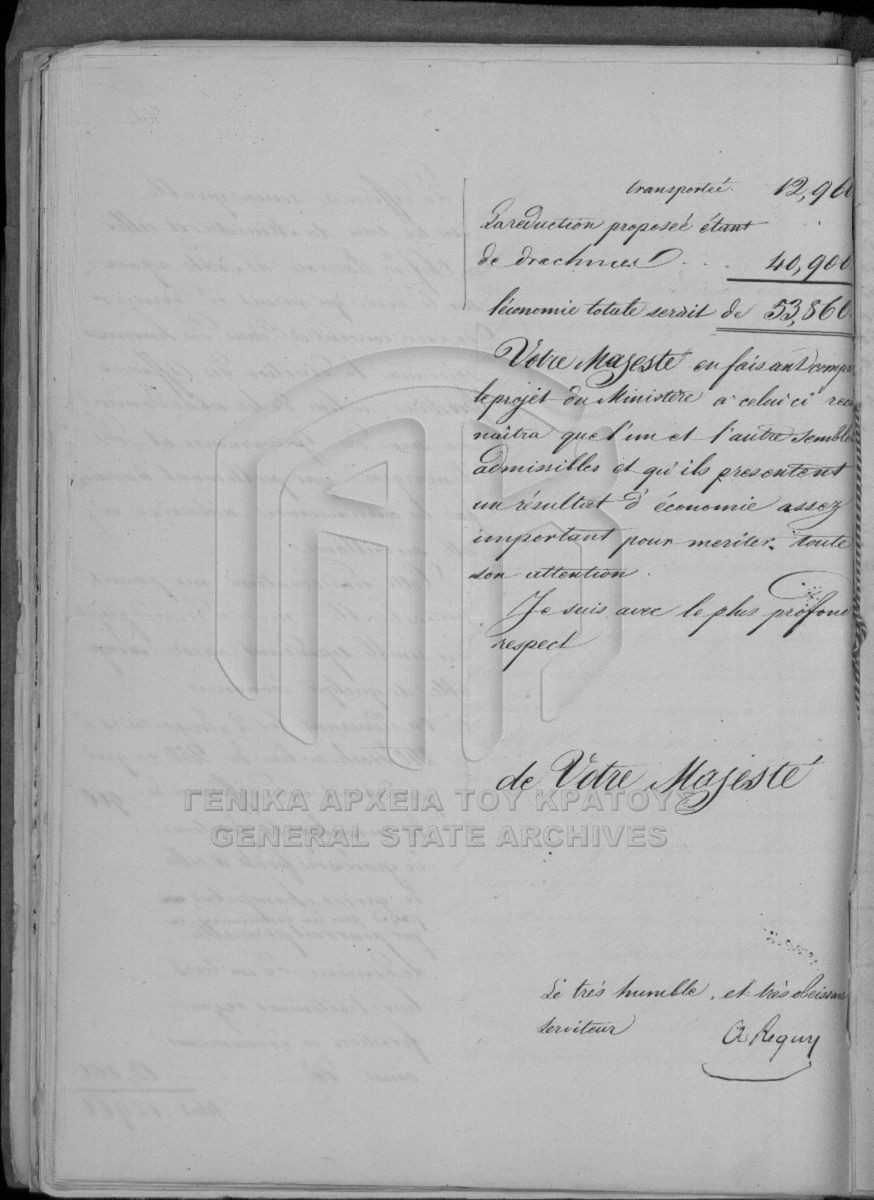 transporteé. 12,960
La reduction proposeé étant
de drachmes . . . 40,900
l'économie totale serait de 53,860.
Votre Majesté en faisant comp
le projèt du Ministère à celui ci reco
naîtra que l'un et l'autre semble
admissibles et qu'ils presentent
un résultat d'économie assez
important pour meriter toute
son attention.
Je suis avec le plus profond
respect
de Votre Majesté
ΓΕΝΙΚΑ ΑΡΧΕΙΑ ΤΟΥ ΚΡΑΤΟΥΣ
GENERAL STATE ARCHIVES
Le très humble, et très obeissan
serviteur
A Reguy